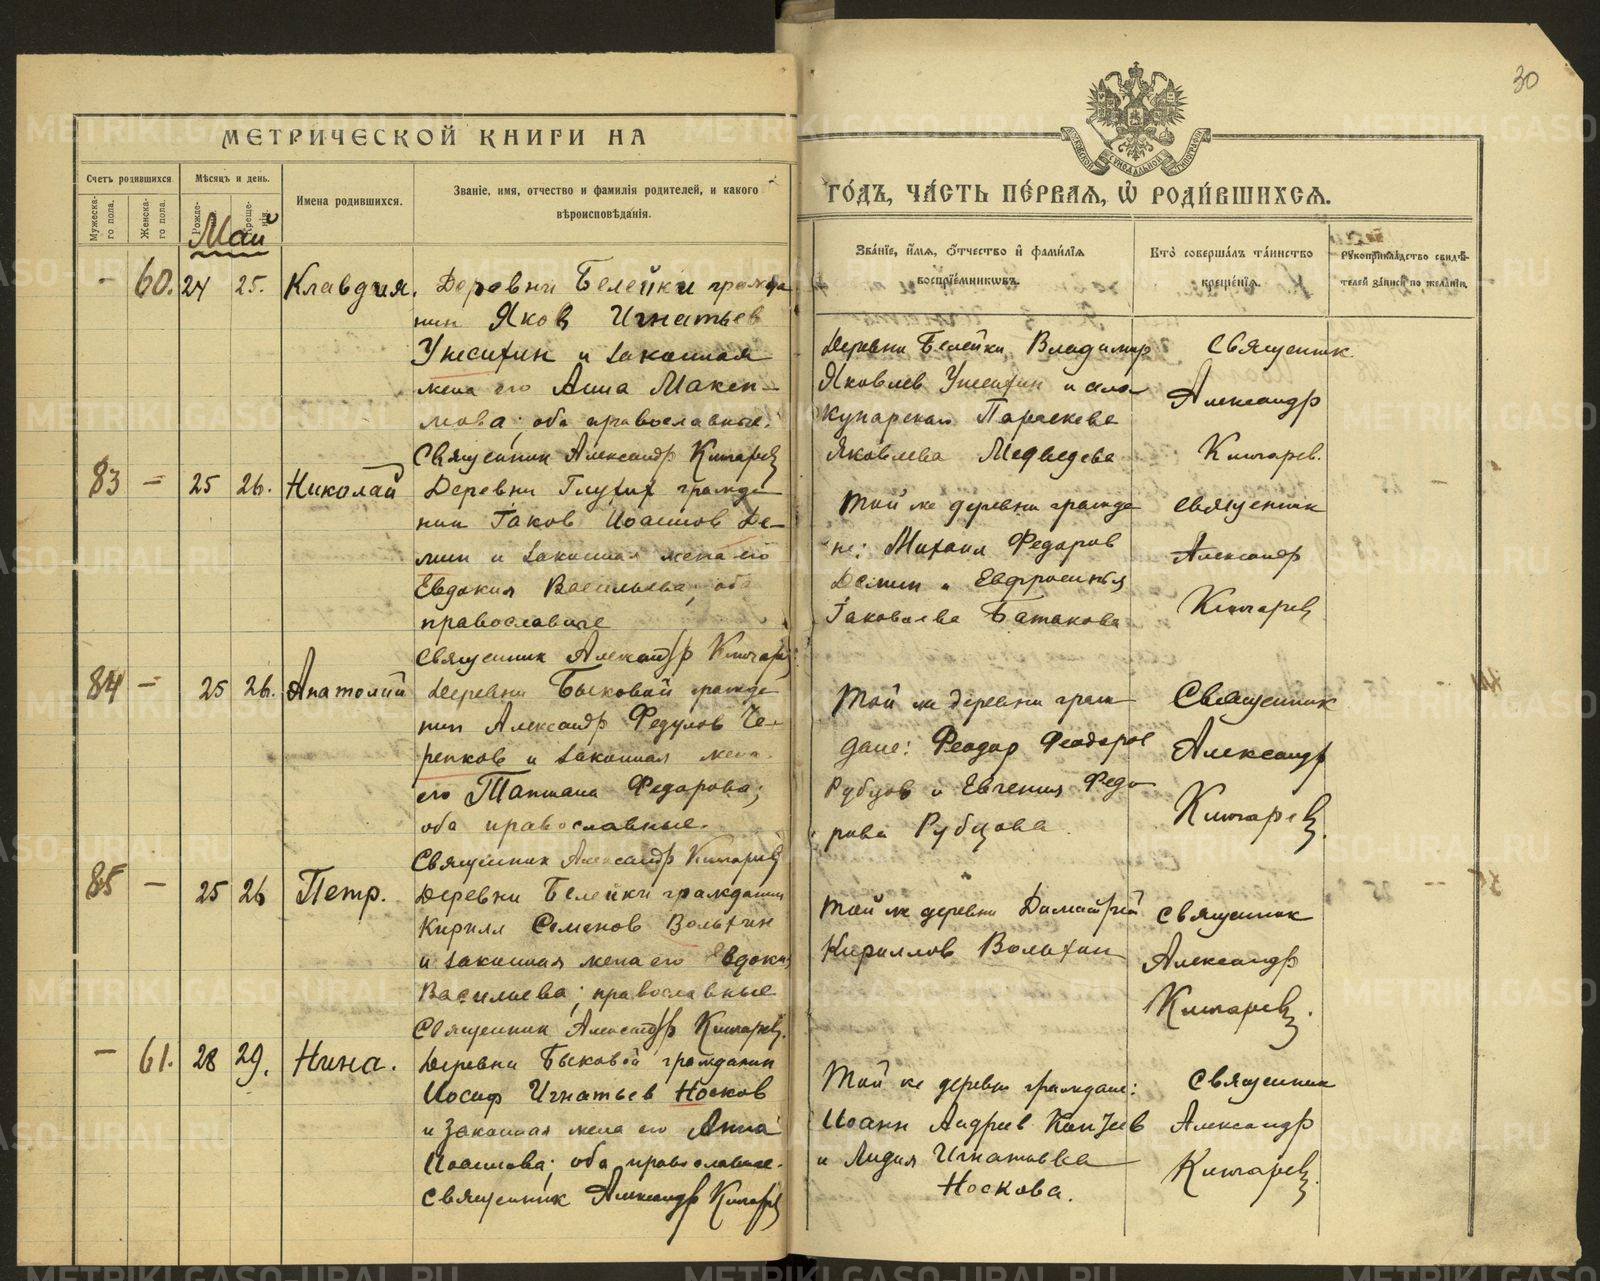 30
МЕТРИЧЕСКОЙ КНИГИ НА
ГОДЪ, ЧАСТЬ ПЕРВАЯ, Ѡ РОДИВШИХСЯ.
Счетъ родившихся.
Мѣсяцъ и день.
Имена родившихся.
Званіе, имя, отчество и фамилія родителей, и какого
вѣроисповѣданія.
Мужеска-
го пола.
Женска-
го пола.
Рожде-
Креще-
нія.
Май
Званіе, имя, отчество и фамилія
воспріемниковъ.
Кто совершалъ таинство
крещенія.
Рукоприкладство свидѣ-
телей записи по желанію.
- 60. 24 25. Клавдия.
Деревни Белейки гражда
нин Яков Игнатьев
Унесихин и законная
жена его Анна Макси-
мова; оба православные.
Священник Александр Кипарев
Деревни Белейки Владимир
Яковлев Унесихин и села
Параскева
Яковлева Медведева
Священник
Александр
Кипарев.
83 - 25 26. Николай
Деревни Глухих гражда
нин Иаков Иоаннов Де-
мин и законная жена его
Евдокия Васильева; оба
православные
Священник Александр Кипарев
Той же деревни гражда
не: Михаил Федоров
Демин и Евфросинья
Иаковлева Батакова
Священник
Александр
Кипарев
84 - 25 26. Анатолий
Деревни Быковой гражда
нин Александр Федулов Че-
репков и законная жена
его Татиана Федорова;
оба православные.
Священник Александр Кипарев
Той же деревни граж
дане: Феодор Феодоров
Рубцов и Евгения Федо
рова Рубцова
Священник
Александр
Кипарев.
85 - 25 26 Петр.
Деревни Белейки гражданин
Кирилл Семенов Вольхин
и законная жена его Евдокия
Васильева; православные
Священник Александр Кипарев.
Той же деревни Димитрий
Кириллов Вольхин
Священник
Александр
Кипарев.
- 61. 28 29. Нина.
Деревни Быковой гражданин
Иосиф Игнатьев Носков
и законная жена его Анна
Иоаннова; оба православные.
Священник Александр Кипарев
Той же деревни граждане:
Иоанн Андреев
и Лидия Игнатьевна
Носкова.
Священник
Александр
Кипарев.
METRIKI.GASO-URAL.RU